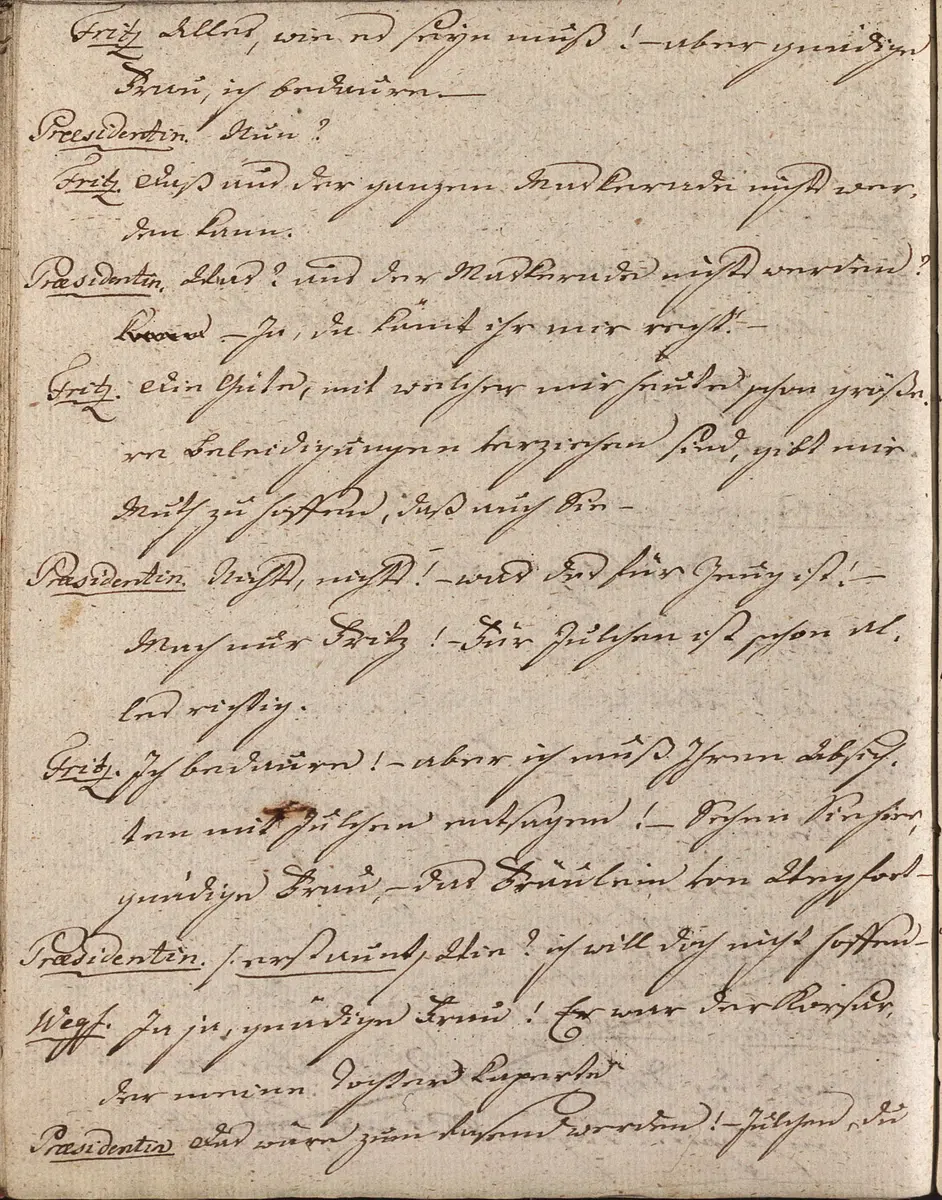 Fritz Alles, wie es seyn muß! – aber gnädige
Frau, ich bedaure. –
Præsidentin. Nun?
Fritz. Daß aus der ganzen Maskerade nichts wer-
den kann.
Præsidentin. Was? aus der Maskerade nichts werden?
– Ja, da kömt ihr mir recht! –
Fritz. Die Güte, mit welcher mir heute schon größe-
re Beleidigungen verziehen sind, gibt mir
Muth zu hoffen, daß auch Sie –
Præsidentin. Nichts, nichts! – was das für Zeug ist! –
Mach nur Fritz! – Für Julchen ist schon al-
les richtig.
Fritz. Ich bedaure! – aber ich muß Ihren Absich-
ten mit Julchen entsagen! – Sehen Sie hier,
gnädige Frau, – das Fräulein von Wegfort –
Præsidentin. /: erstaunt, Wie? ich will doch nicht hoffen –
Wegf. Ja ja, gnädige Frau! Er war der Korsar,
der meine Tochter kaperte
Præsidentin Das wäre zum rasend werden! – Julchen, du